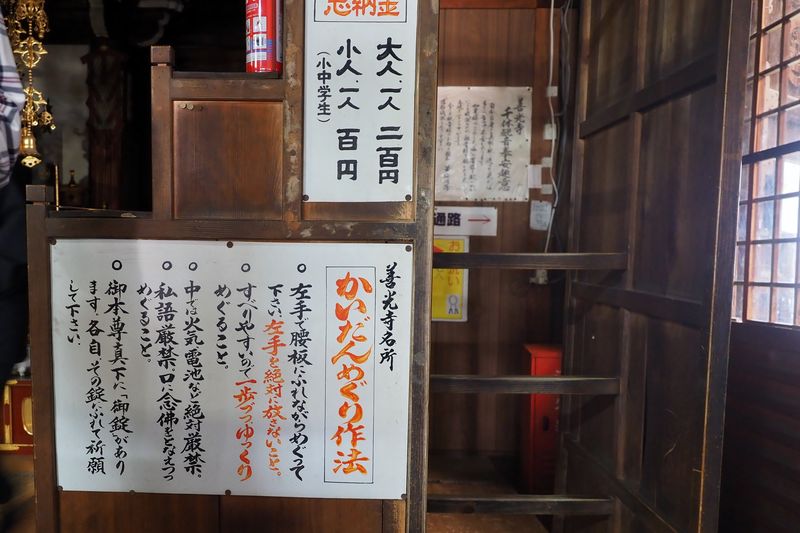 志納金
大人一人 二百円
小人一人 百円
(小中学生)
善光寺
千体観音奉安趣意
通路
善光寺名所
かいだんめぐり作法
○左手で腰板にふれながらめぐって
下さい。左手を絶対に放さないこと。
○すべりやすいので一歩づつゆっくり
めぐること。
○中では火気、電池など絶対厳禁。
○私語厳禁、口に念佛をとなえつつ
めぐること。
○御本尊真下に「御錠」があり
ます、各自、その錠にふれて祈願
して下さい。